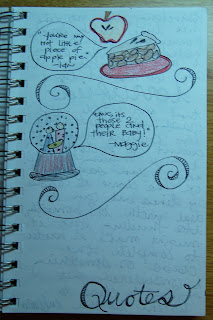 "You're my
hot little
piece of
apple pie."
its
those 2
people and
their Baby!"
~Maggie
Quotes